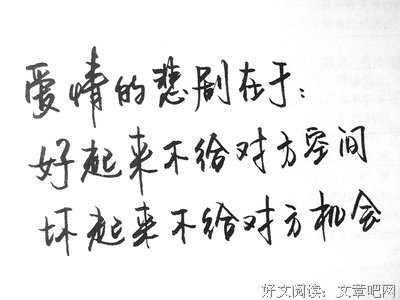 爱情的悲剧在于：
好起来不给对方空间
坏起来不给对方机会
好文阅读：文章吧网